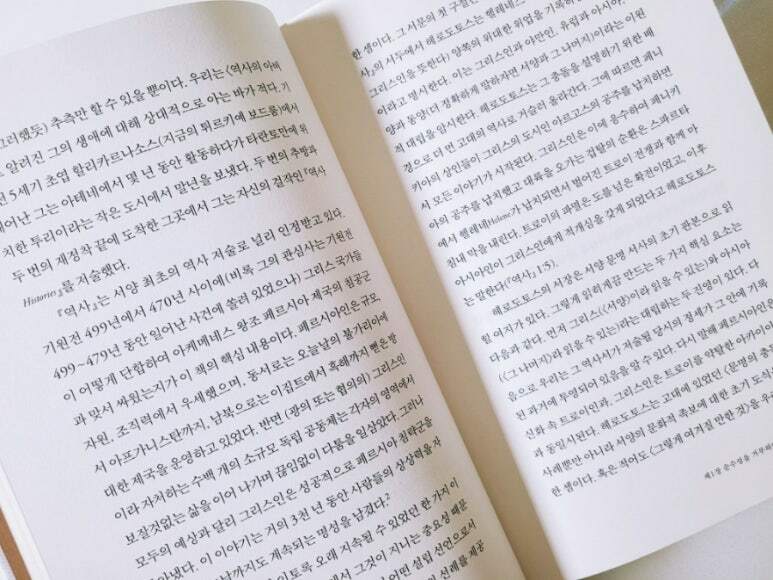 그러했듯) 추측만 할 수 있을 뿐이다. 우리는 〈역사의 아버
알려진 그의 생애에 대해 상대적으로 아는 바가 적다. 기
전 5세기 초엽 할리카르나소스(지금의 튀르키예 보드룸)에서
어난 그는 아테네에서 몇 년 동안 활동하다가 타란토만에 위
치한 투리이라는 작은 도시에서 말년을 보냈다. 두 번의 추방과
두 번의 재정착 끝에 도착한 그곳에서 그는 자신의 걸작인 『역사
Histories』를 저술했다.
『역사』는 서양 최초의 역사 저술로 널리 인정받고 있다.
기원전 499년에서 470년 사이에(비록 그의 관심사는 기원전
499~479년 동안 일어난 사건에 쏠려 있었으나) 그리스 국가들
이 어떻게 단합하여 아케메네스 왕조 페르시아 제국의 침공군
과 맞서 싸웠는지가 이 책의 핵심 내용이다. 페르시아인은 규모,
자원, 조직력에서 우세했으며, 동서로는 오늘날의 불가리아에
서 아프가니스탄까지, 남북으로는 이집트에서 흑해까지 뻗은 방
대한 제국을 운영하고 있었다. 반면 (광의 또는 협의의) 그리스인
이라 자처하는 수백 개의 소규모 독립 공동체는 각자의 영역에서
보잘것없는 삶을 이어 나가며 끊임없이 다툼을 일삼았다. 그러나
모두의 예상과 달리 그리스인은 성공적으로 페르시아 침략군을
아냈다. 이 이야기는 거의 3천 년 동안 사람들의 상상력을 자
날까지도 계속되는 명성을 남겼다.²
이토록 오래 지속될 수 있었던 한 가지 이
에서 그것이 지니는 중요성 때문
어떤 설립 선언으로서
선례를 제공
한 셈이다. 그 서문의 첫 구절
사』의 서두에서 헤로도토스는 헬레네스
그리스인을 뜻한다) 양쪽의 위대한 위업을 기록하
이라고 명시한다. 이는 그리스인과 야만인, 유럽과 아시아,
양과 동양(더 정확하게 말하자면 서양과 그 나머지)이라는 이원
적 대립을 암시한다. 헤로도토스는 그 충돌을 설명하기 위한 배
경으로 더 먼 고대의 역사로 거슬러 올라간다. 그에 따르면 페니
키아의 상인들이 그리스의 도시인 아르고스의 공주를 납치하면
서 모든 이야기가 시작된다. 그리스인은 이에 응수하여 페니키
아의 공주를 납치했고 대륙을 오가는 겁탈의 순환은 스파르타
에서 헬레네Helene가 납치되면서 벌어진 트로이 전쟁과 함께 마
침내 막을 내린다. 트로이의 파멸은 도를 넘은 확전이었고, 이후
아시아인이 그리스인에게 적개심을 갖게 되었다고 헤로도토스
는 말한다(『역사』, 1:5).
헤로도토스의 서장은 서양 문명 서사의 초기 판본으로 읽
힐 여지가 있다. 그렇게 읽히게끔 만드는 두 가지 핵심 요소는
다음과 같다. 먼저 그리스(〈서양〉이라 읽을 수 있는)와 아시아
(〈그 나머지〉라 읽을 수 있는)라는 대립하는 두 진영이 있다. 다
음으로 우리는 그 역사서가 저술될 당시의 정세가 그 안에 기록
된 과거에 투영되어 있음을 알 수 있다. 다시 말해 페르시아인
신화 속 트로이인과, 그리스인은 트로이를 약탈한 아카이아
과 동일시된다. 헤로도토스는 고대에 있었던 〈문명의 충돌
사례뿐만 아니라 서양의 문화적 족보에 대한 초기 도식
한 셈이다. 혹은 적어도 〈그렇게 여겨질 만한 것〉을 우
제1장 순수성을 거부하